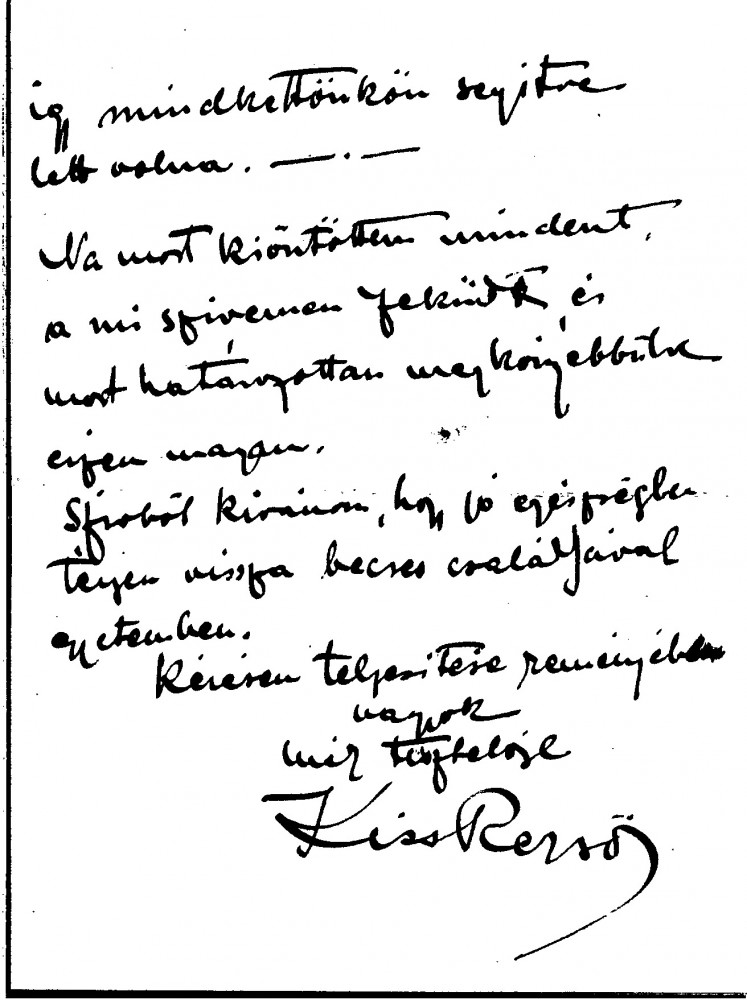 igy mindkettönkön segitve
lett volna. — . —
Na most kiöntöttem mindent,
a mi szivemen feküdt, és
most határozottan megkönyebbülve
érzem magam.
Szivböl kivánom, hogy jó egészségben
térjen vissza becses családjával
egyetemben.
Kérésem teljesitése reményében
vagyok
tisztelöje
Kiss Rezsö